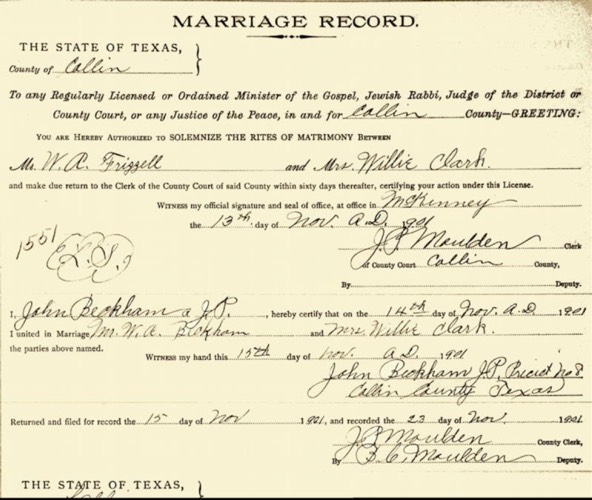 MARRIAGE RECORD.
THE STATE OF TEXAS,
County of Collin
To any Regularly Licensed or Ordained Minister of the Gospel, Jewish Rabbi, Judge of the District or
County Court, or any Justice of the Peace, in and for Collin County—GREETING:
YOU ARE HEREBY AUTHORIZED TO SOLEMNIZE THE RITES OF MATRIMONY BETWEEN
Mr. W. A. Frizzell and Mrs. Willie Clark.
and make due return to the Clerk of the County Court of said County within sixty days thereafter, certifying your action under this License.
WITNESS my official signature and seal of office, at office in McKinney
the 13th day of Nov. A.D. 1901
1551
L.S.
J. P. Moulden Clerk
of County Court Collin County,
By Deputy.
I, John Beckham a J.P. , hereby certify that on the 14th day of Nov. A.D. 1901
I united in Marriage Mr. W. A. Beckham and Mrs Willie Clark.
the parties above named.
WITNESS my hand this 15th day of Nov. A.D. 1901
John Beckham J.P. Precict No 8
Collin County Texas
Returned and filed for record the 15 day of Nov 1901, and recorded the 23 day of Nov. 1901.
J. P. Moulden County Clerk,
By B. C. Moulden Deputy.
THE STATE OF TEXAS,